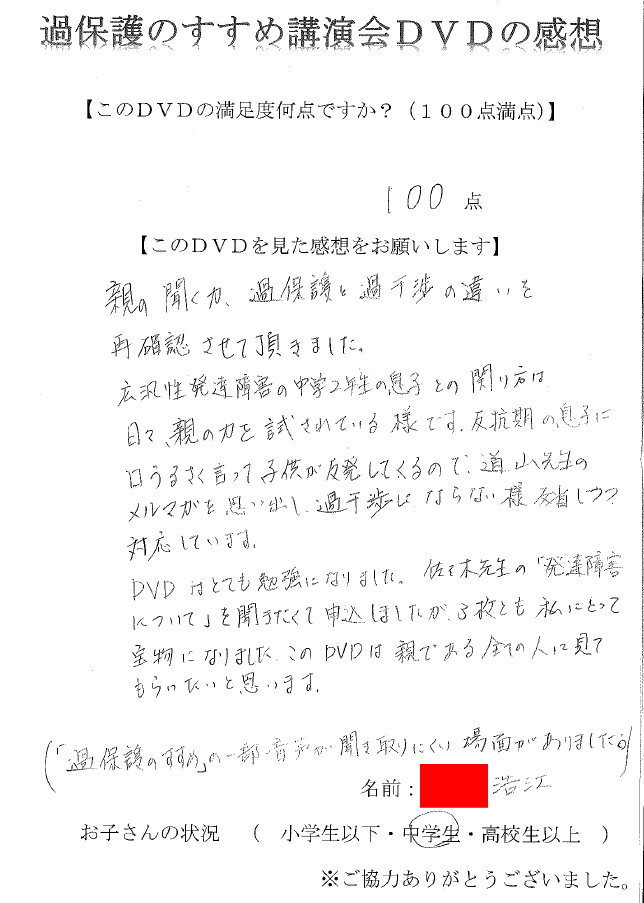 過保護のすすめ講演会DVDの感想
【このDVDの満足度何点ですか？（１００点満点）】
100 点
【このDVDを見た感想をお願いします】
親の聞く力、過保護と過干渉の違いを
再確認させて頂きました。
広汎性発達障害の中学2年生の息子との関り方は
日々、親の力を試されている様です。反抗期の息子に
口うるさく言って子供が反発してくるので、道山先生の
メルマガを思い出し、過干渉にならない様反省しつつ
対応しています。
DVDはとても勉強になりました。佐々木先生の「発達障害
について」を聞きたくて申込しましたが、3枚とも私にとって
宝物になりました。このDVDは親である全ての人に見て
もらいたいと思います。
(「過保護のすすめ」の一部音声が聞き取りにくい場面がありました。)
名前： 浩江
お子さんの状況　（　小学生以下・中学生・高校生以上　）
※ご協力ありがとうございました。